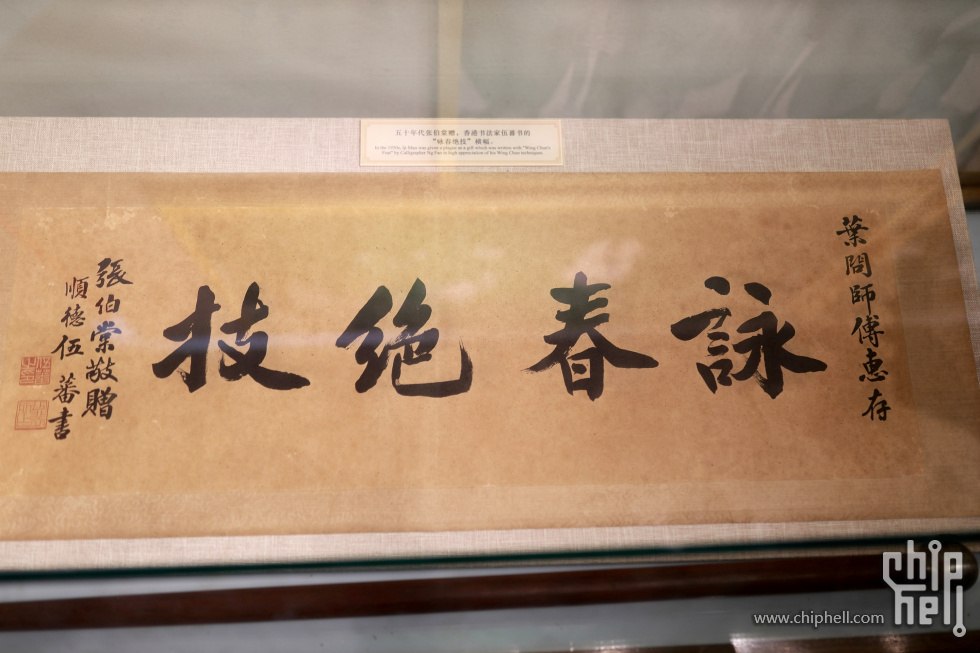 五十年代张伯棠赠，香港书法家伍蕃书的
“咏春绝技”横幅。
In the 1950s, Ip Man was given a plaque as a gift which was written with "Wing Chun's
Feat" by Calligrapher Ng Fan in high appreciation of his Wing Chun techniques.
葉問師傅惠存
詠春絕技
張伯棠敬贈
順德伍蕃書
www.chiphell.com
chip
hell